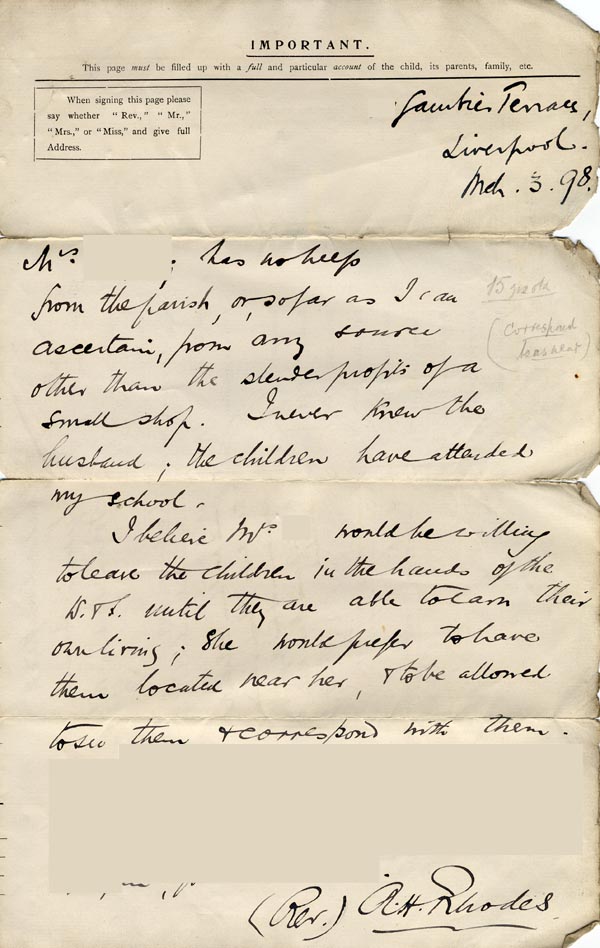 IMPORTANT.
This page must be filled up with a full and particular account of the child, its parents, family, etc.
When signing this page please
say whether "Rev.," "Mr.,"
"Mrs.," or "Miss," and give full
Address.
Gambier Terrace,
Liverpool.
Mch. 3. 98.
Mrs ; has no help
from the parish, or, so far as I can
ascertain, from any source
other than the slender profits of a
small shop. I never knew the
husband; the children have attended
my school.
I believe Mrs would be willing
to leave the children in the hands of the
W. & S. until they are able to earn their
own living; She would prefer to have
them located near her, & to be allowed
to see them & correspond with them.
(Correspond
(Rev.) A. H. Rhodes